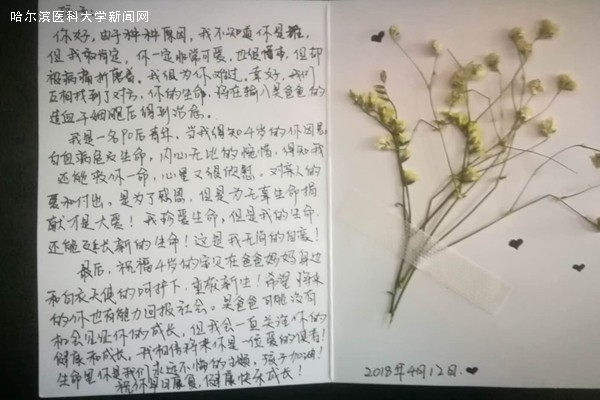 哈尔滨医科大学新闻网
你好，由于种种原因，我不知道你是谁，
但我敢肯定，你一定非常可爱，也很懂事，但却
被病痛折磨着，我很为你难过，幸好，我们
互相找到了对方，你的生命，将在输入吴爸爸的
造血干细胞后得到治愈。
我是一名90后青年，当我得知4岁的你因患
白血病危及生命，内心无比的惋惜，得知我
还能救你一命，心里又很欣慰，对亲人的
爱和付出，是为了感恩，但是为无辜生命捐
献才是大爱！我珍爱生命，但是我的生命
还能延长新的生命！这是我无尚的自豪！
最后，祝福4岁的宝贝在爸爸妈妈身边
和白衣天使的呵护下，重获新生！希望将来
的你也有能力回报社会。吴爸爸可能没有
机会见证你的成长，但我会一直关注你的
健康和成长，我相信将来你是一位爱的使者！
生命里你是我们永远不悔的主题，孩子加油！
祝你早日康复，健康快乐成长！
2018年4月12日.